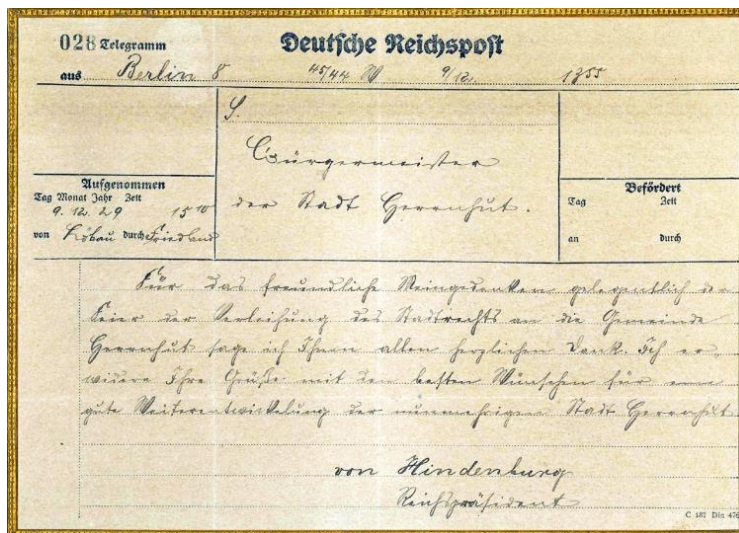 028 Telegramm
Deutsche Reichspost
aus Berlin 8 45/44 W 9/12. 1355
S.
Bürgermeister
der Stadt Herrnhut.
Aufgenommen
Tag Monat Jahr Zeit
9. 12. 29 15 10
von Löbau durch Friedland
Befördert
Tag Zeit
an durch
Für das freundliche Meingedenken gelegentlich der
Feier der Verleihung des Stadtrechts an die Gemeinde
Herrnhut sage ich Ihnen allen herzlichen Dank. Ich er-
widere Ihre Grüße mit den besten Wünschen für eine
gute Weiterentwickelung der nunmehrigen Stadt Herrnhut.
von Hindenburg
Reichspräsident
C 187 Din 476